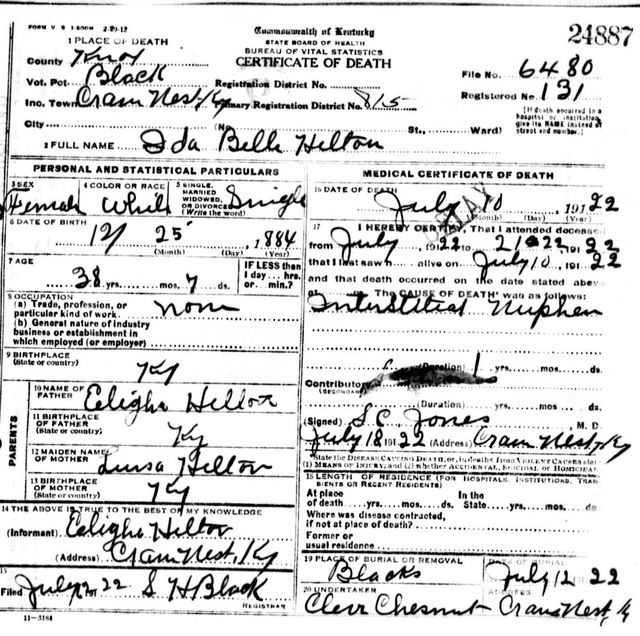 FORM V. S. 1-500M 2-29-12
24887
Commonwealth of Kentucky
STATE BOARD OF HEALTH
BUREAU OF VITAL STATISTICS
CERTIFICATE OF DEATH
1 PLACE OF DEATH
County Knox
Vot. Pct. Black
Inc. Town Crain Nest, Ky
City
(No.
St.,
Ward)
Registration District No.
Primary Registration District No. 815
File No. 6480
Registered No. 131
[If death occurred in a
hospital or institution,
give its NAME instead of
street and number.]
2 FULL NAME Ida Belle Hilton
PERSONAL AND STATISTICAL PARTICULARS
3 SEX Female
4 COLOR OR RACE White
5 SINGLE,
MARRIED
WIDOWED,
OR DIVORCED
(Write the word) Single
6 DATE OF BIRTH
12 25 1884
(Month) (Day) (Year)
7 AGE
38 yrs. mos. 7 ds.
IF LESS than
1 day.... hrs.
or.... min.?
8 OCCUPATION
(a) Trade, profession, or
particular kind of work. none
(b) General nature of industry
business or establishment in
which employed (or employer)
9 BIRTHPLACE
(State or country) Ky
PARENTS
10 NAME OF
FATHER Eligha Hilton
11 BIRTHPLACE
OF FATHER
(State or country) Ky
12 MAIDEN NAME
OF MOTHER Luisa Hilton
13 BIRTHPLACE
OF MOTHER
(State or country) Ky
14 THE ABOVE IS TRUE TO THE BEST OF MY KNOWLEDGE
(Informant) Eligha Hilton
(Address) Crain Nest, Ky
15
Filed July 12 191 22 S H Black
REGISTRAR
11-3184
MEDICAL CERTIFICATE OF DEATH
16 DATE OF DEATH
July 10 191 22
(Month) (Day) (Year)
17 I HEREBY CERTIFY, That I attended deceased
from July, 191 22 to 191 22
that I last saw alive on July 10, 191 22
and that death occurred on the date stated above
at m. The CAUSE OF DEATH was as follows:
Interstitial
(Duration) 1 yrs. mos. ds.
Contributory
(SECONDARY)
(Duration) yrs. mos. ds.
(Signed) S.C. Jones M. D.
July 18 191 22 (Address) Crain Nest, Ky
State the DISEASE CAUSING DEATH, or, in deaths from VIOLENT CAUSES state
(1) MEANS OF INJURY; and (2) whether ACCIDENTAL, SUICIDAL or HOMICIDAL
18 LENGTH OF RESIDENCE (FOR HOSPITALS, INSTITUTIONS, TRANSIENTS OR RECENT RESIDENTS)
At place
of death yrs. mos. ds.
In the
State yrs. mos. ds.
Where was disease contracted,
if not at place of death?
Former or
usual residence
19 PLACE OF BURIAL OR REMOVAL
Blacks
July 12 22
20 UNDERTAKER
Clever Chesnut
ADDRESS
Crain Nest, K